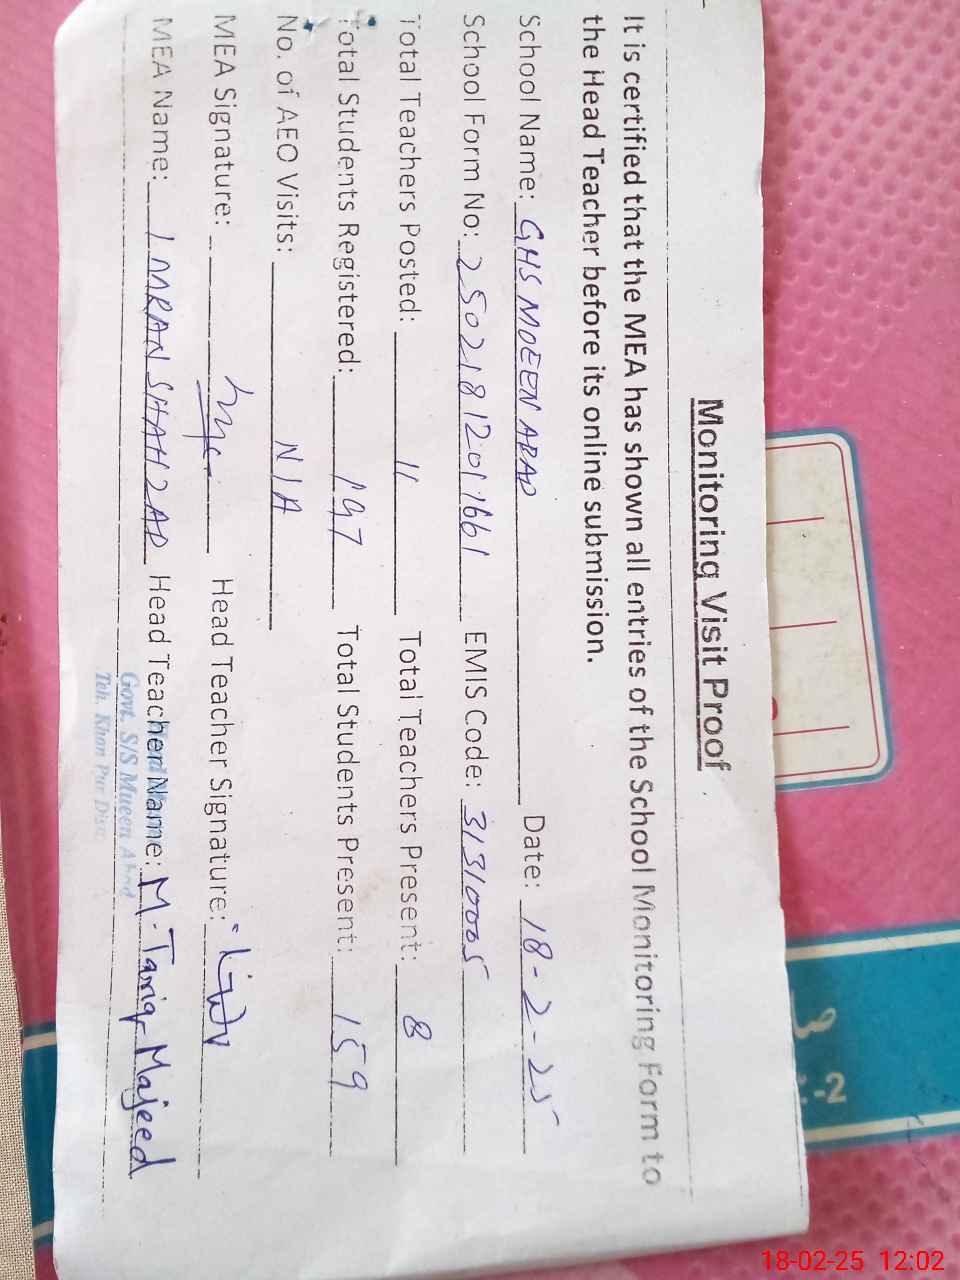 Monitoring Visit Proof
It is certified that the MEA has shown all entries of the School Monitoring Form to
the Head Teacher before its online submission.
School Name: GHS MOEEN ABAD Date: 18-2-25
School Form No: 2502181201661 EMIS Code: 31310005
Total Teachers Posted: 11 Total Teachers Present: 8
Total Students Registered: 197 Total Students Present: 159
No. of AEO Visits: N/A
MEA Signature: Head Teacher Signature:
MEA Name: IMRAN SHAHZAD Head Teacher Name: M. Tariq Majeed
Govt. S/S Mueen Abad
Teh. Khan Pur Distt
-2
18-02-25 12:02